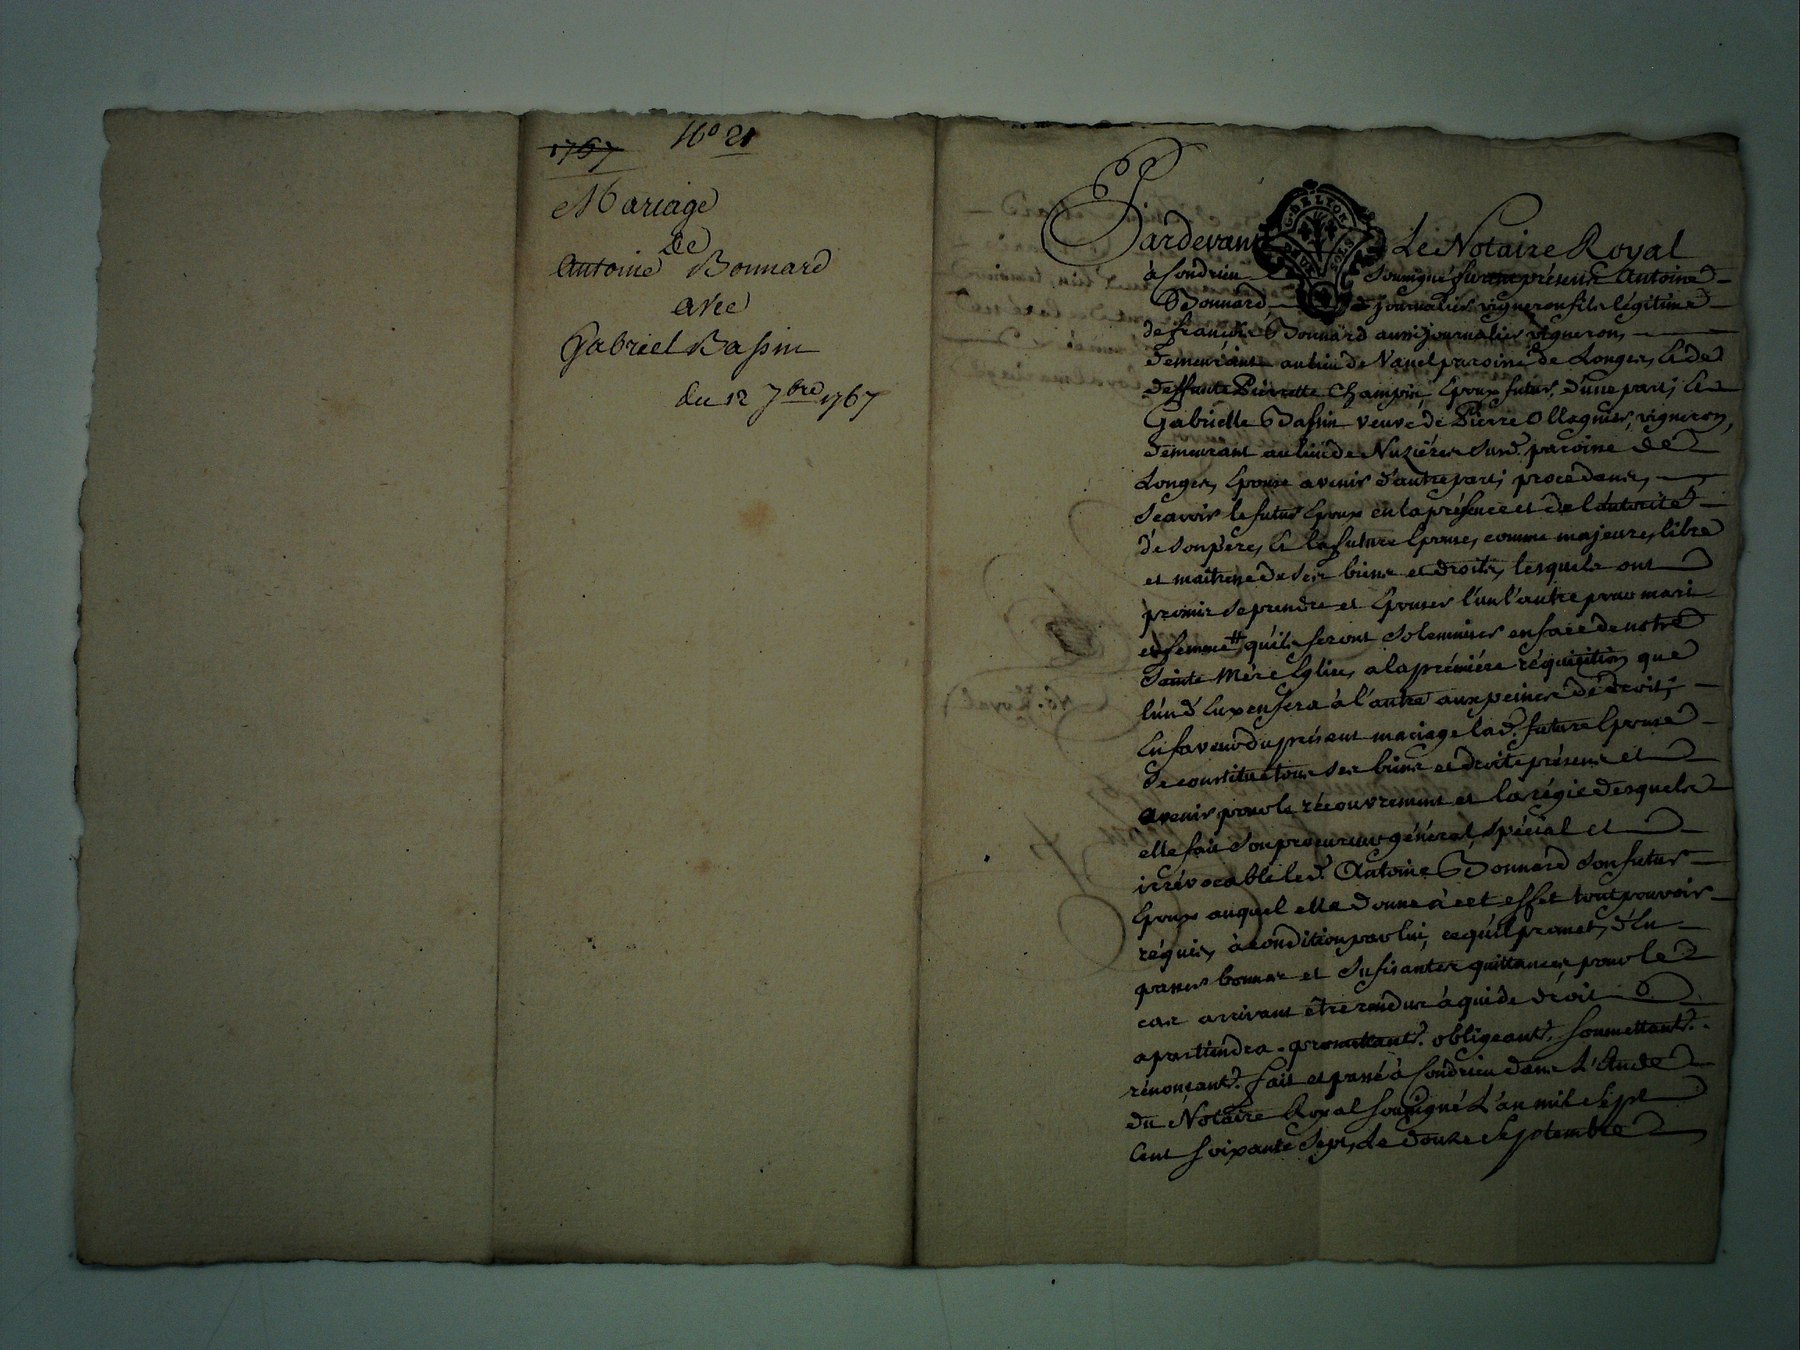 1767
No 21
Mariage
de
Antoine Bonnard
avec
Gabriel Bassin
du 12 7bre 1767
G. DE LYON
Pardevant Le Notaire Royal
à Condrieu Soussigné furent présents Antoine
Bonnard, journalier vigneron fils légitime
de françois Bonnard aussi journalier vigneron,
demeurant au lieu de Nanel paroisse de Longes, & de
deffunte Pierrette Champin, Epoux futur, d'une part; Et
Gabrielle Bassin veuve de Pierre Ollagnier, vigneron,
demeurant au lieu de Nuzières susd. paroisse de
Longes, Epouse avenir d'autre part; procedants,
Sçavoir le futur Epoux en la présence et de l'autorité
de son père, Et la future Epouse, comme majeure, libre
et maitresse de ses biens et droits, lesquels ont
promis se prendre et Epouser l'un l'autre pour mari
et femme # qu'ils feront Solemniser en face de notre
Sainte Mère Eglise, a la prémiére réquisition que
l'un d'Eux en fera à l'autre aux peines de droit;
En faveur du présent mariage lad. future Epouse
Se constitue tous ses biens et droits présens et
avenir pour le récouvrement et la régie desquels
elle fait Son procureur général, spécial et
irrévocable led. Antoine Bonnard Son futur
Epoux auquel elle donne à cet effet tout pouvoir
réquis, à condition par lui, ce qu'il promet, d'En
passer bonnes et Sufisantes quittances pour le
cas arrivant être rendus à qui de droit
apartiendra. promettant. obligeant. Soumettant.
rénonçant. fait et passé à Condrieu dans L'Etude
du Notaire Royal soussigné L'an mil Sept
Cent Soixante Sept, Le douze Septembre